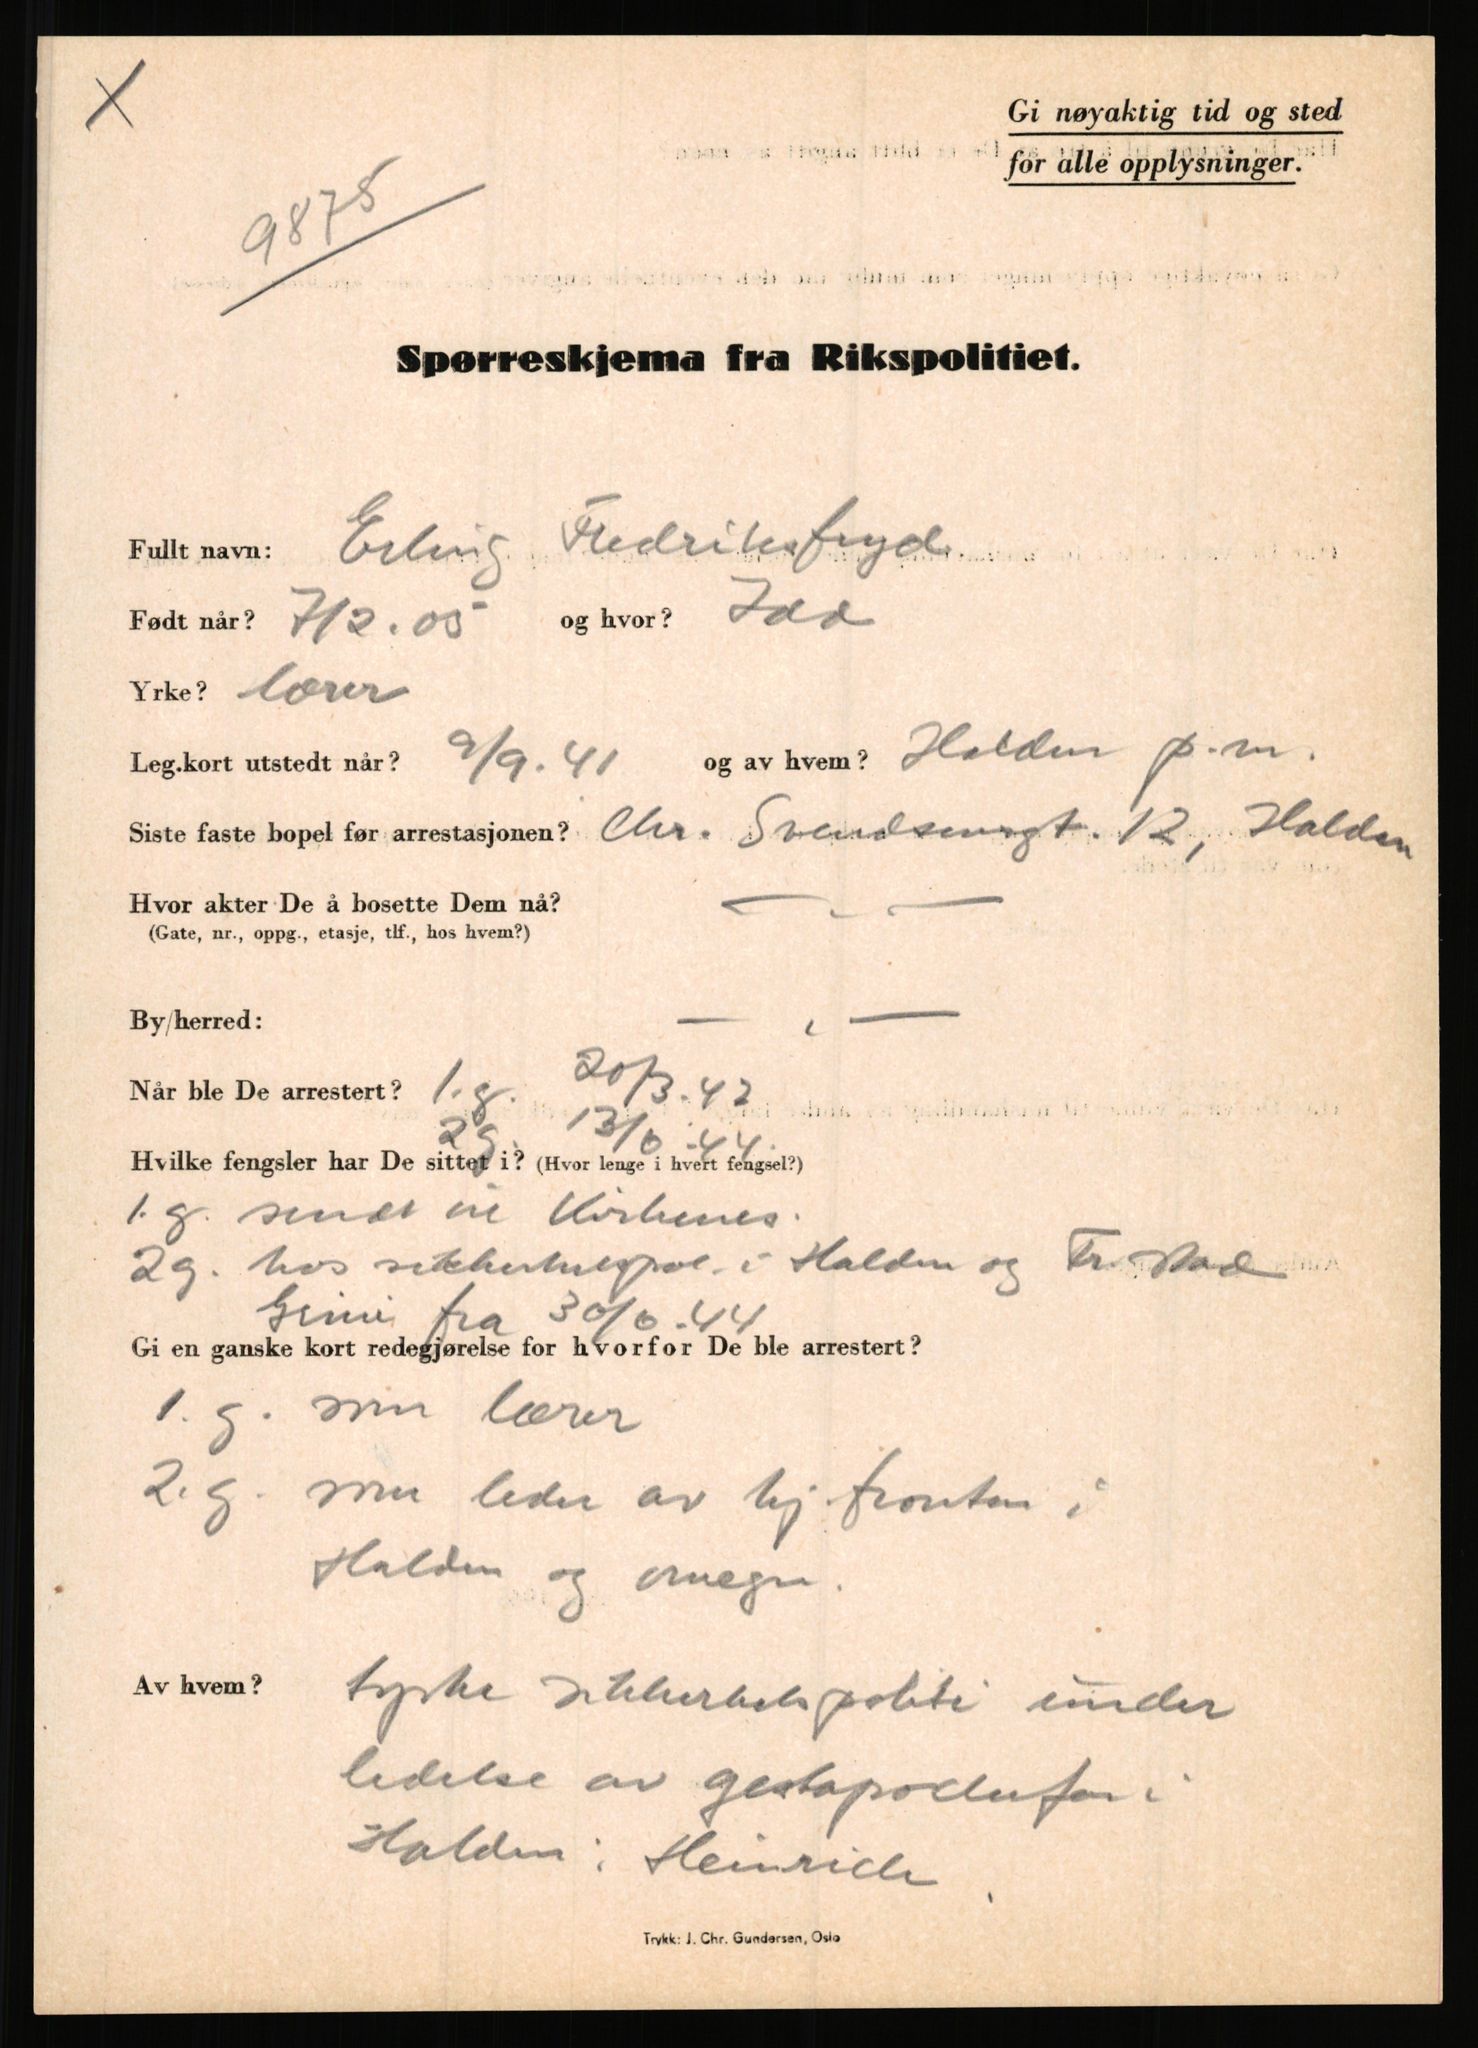 X
Gi nøyaktig tid og sted
for alle opplysninger.
9875
Spørreskjema fra Rikspolitiet.
Fullt navn: Erling Fredriksfryd
Født når? 7/2.05 og hvor? Idd
Yrke? lærer
Leg.kort utstedt når? 9/9.41 og av hvem? Halden p.m.
Siste faste bopel før arrestasjonen? Chr. Svendsensgt. 12, Halden
Hvor akter De å bosette Dem nå? — „ —
(Gate, nr., oppg., etasje, tlf., hos hvem?)
By/herred: — „ —
Når ble De arrestert? 1.g. 20/3.42
2g. 13/6.44.
Hvilke fengsler har De sittet i? (Hvor lenge i hvert fengsel?)
1.g. sendt til Kirkenes.
2g. hos sikkerhetspol. i Halden og Fr.stad
Grini fra 30/6.44
Gi en ganske kort redegjørelse for hvorfor De ble arrestert?
1. g. som lærer
2. g. som leder av hj.fronten i
Halden og omegn.
Av hvem? tyske sikkerhetspoliti under
ledelse av i
Halden: Heinrich
Trykk: J. Chr. Gundersen, Oslo